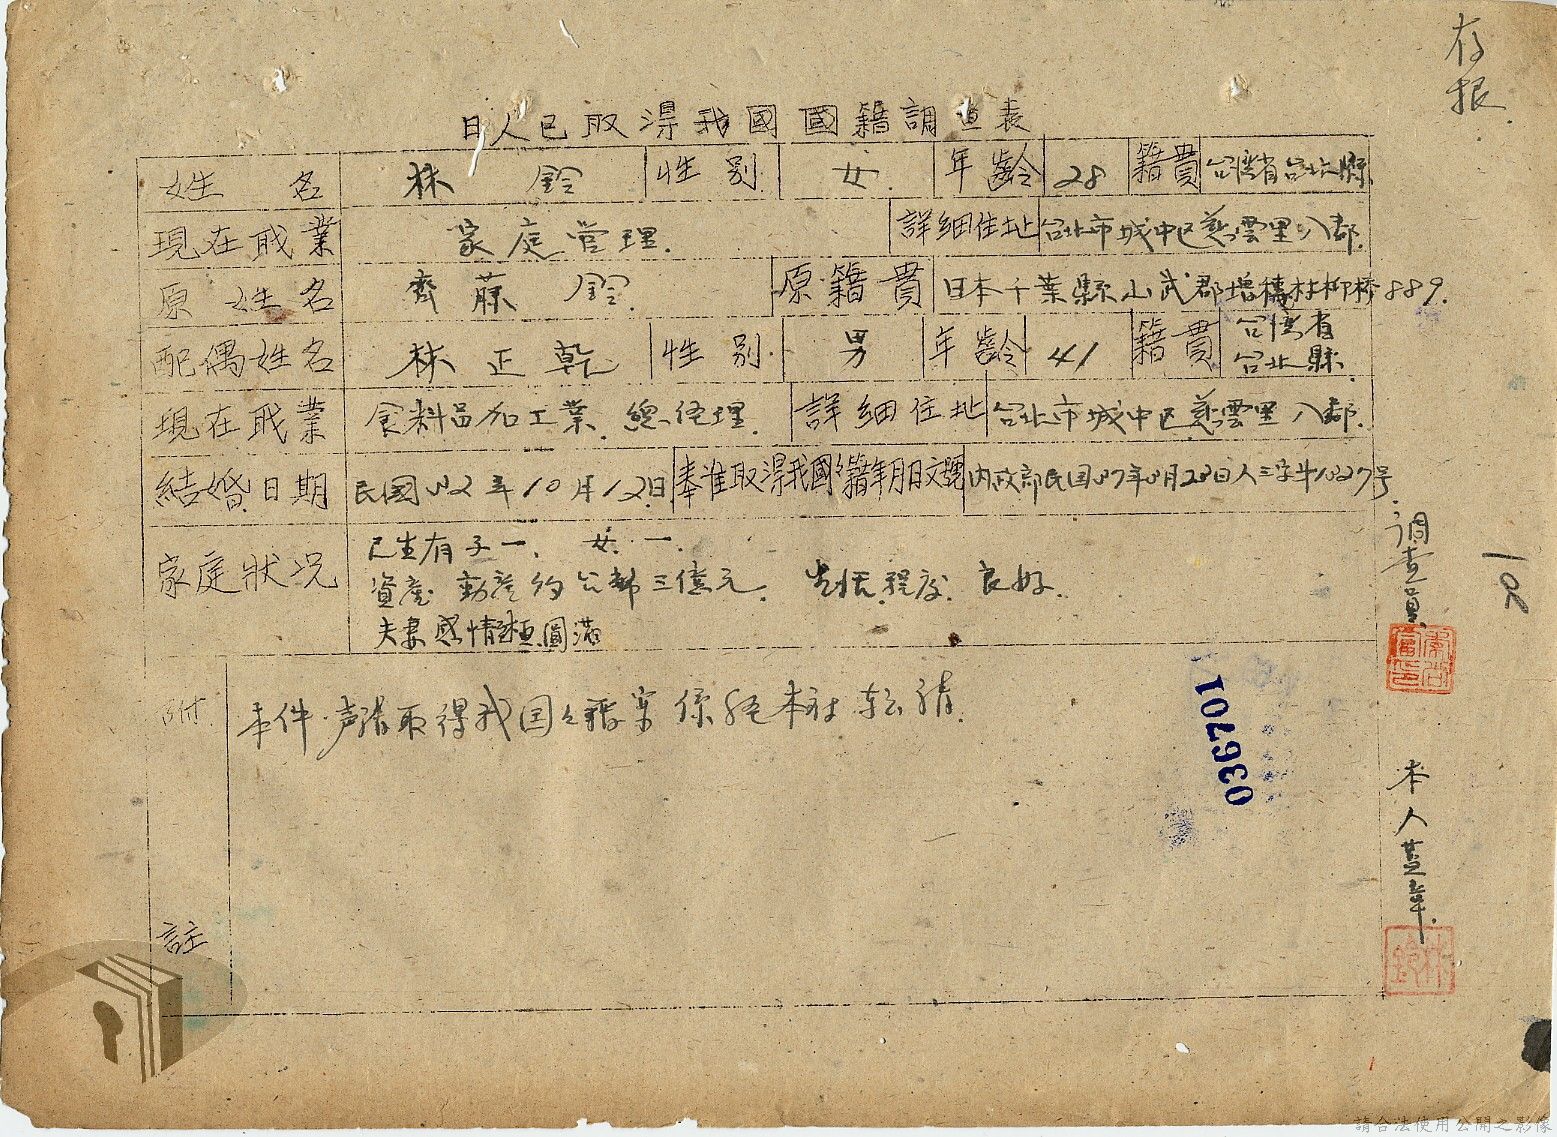 存根
日人已取得我國國籍調查表
姓名 林鈴 性別 女 年齡 28 籍貫 台湾省台北縣
現在職業 家庭管理 詳細住址 台北市城中区慈雲里八鄰
原姓名 齊藤鈴 原籍貫 日本千葉縣山武郡增穗村柳橋889
配偶姓名 林正乾 性別 男 年齡 41 籍貫 台湾省台北縣
現在職業 食料品加工業 總經理 詳細住址 台北市城中区慈雲里八鄰
結婚日期 民國 年10月12日 奉准取得我國々籍年月日文號 內政部民国
家庭狀況 已生有子一、女一
資產 動產約 三億元 生活程度良好
夫妻感情極圓滿
調查員
附註 本件声請取得我国々籍案係經本社轉請
本人蓋章
林鈴
036701
請合法使用公開之影像